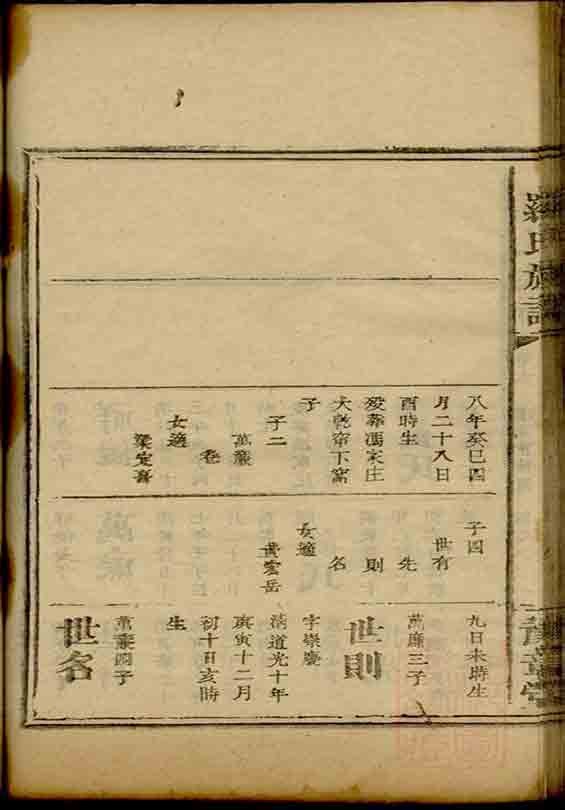 羅氏族譜
八年癸巳四
月二十八日
酉時生
歿葬馮家庄
大乾窜下窩
子
子二
萬嚴
卷
女適
梁定喜
子四
世有
先
則
名
女適
黄宏岳
九日未時生
萬廉三子
世則
字崇慶
清道光十年
庚寅十二月
初十日亥時
生
萬廉四子
世名
豫章堂